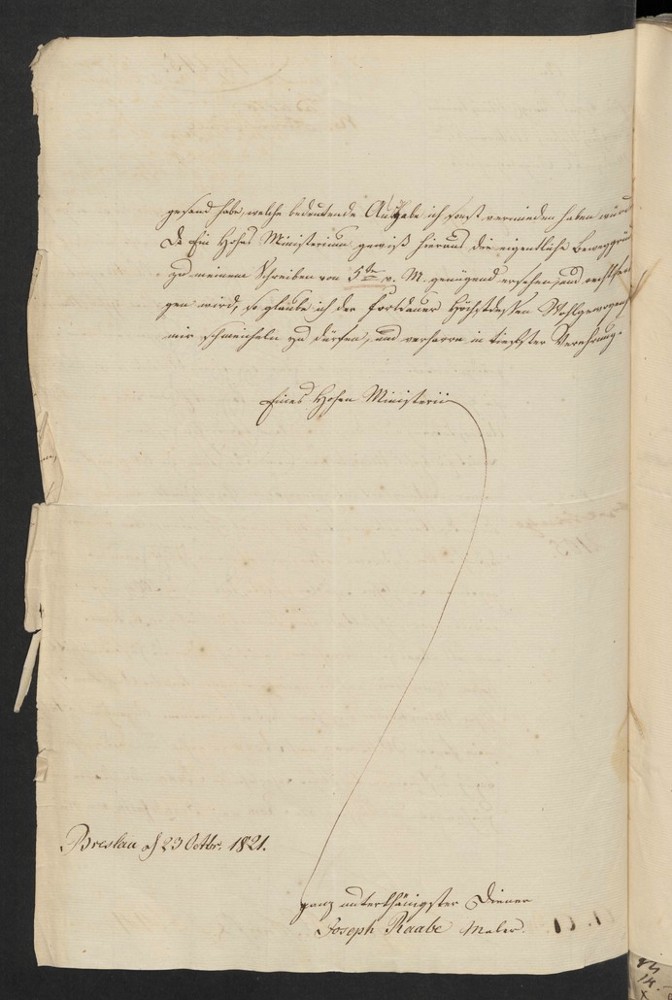 gesend habe, welche bedeutende Ausgabe ich sonst vermieden haben würd
Da Ein Hohes Ministerium gewiß hieraus die eigentliche Beweggrün
zu meinem Schreiben vom 5ten v. M. genügend ersehen, und
gen wird, so glaube ich der Fortdauer Höchstdessen Wohlgewogenh
mir schmeicheln zu dürfen, und verharre in tiefster Verehrung.
Eines Hohen Ministerii
Breslau d 23 Octbr. 1821.
ganz unterthänigster Diener
Joseph Raabe Maler.